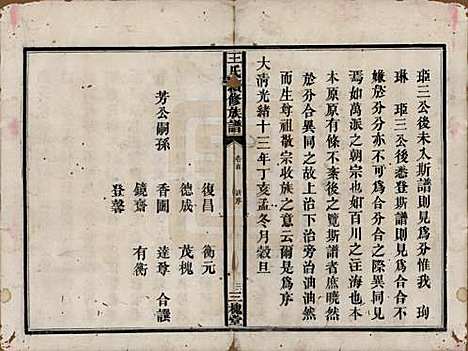 琊三公後未入斯譜則見為分惟我　珣
琳　琊三公後悉登斯譜則見為合合不
嫌於分分亦可为合分合之際異同見
焉如萬派之朝宗也如百川之汪海也木
本原原有條不紊後之覽斯譜者庶曉然
於分合異同之故上治下治旁治油油然
而生尊祖敬宗收族之意云爾是為序
大清光緒十三年丁亥孟冬月穀旦
王氏續修族譜
卷首
三槐堂
復昌　衡元
德成　茂槐
芳公嗣孫　香圃　達尊　合譔
鏡齋　有衡
登馨